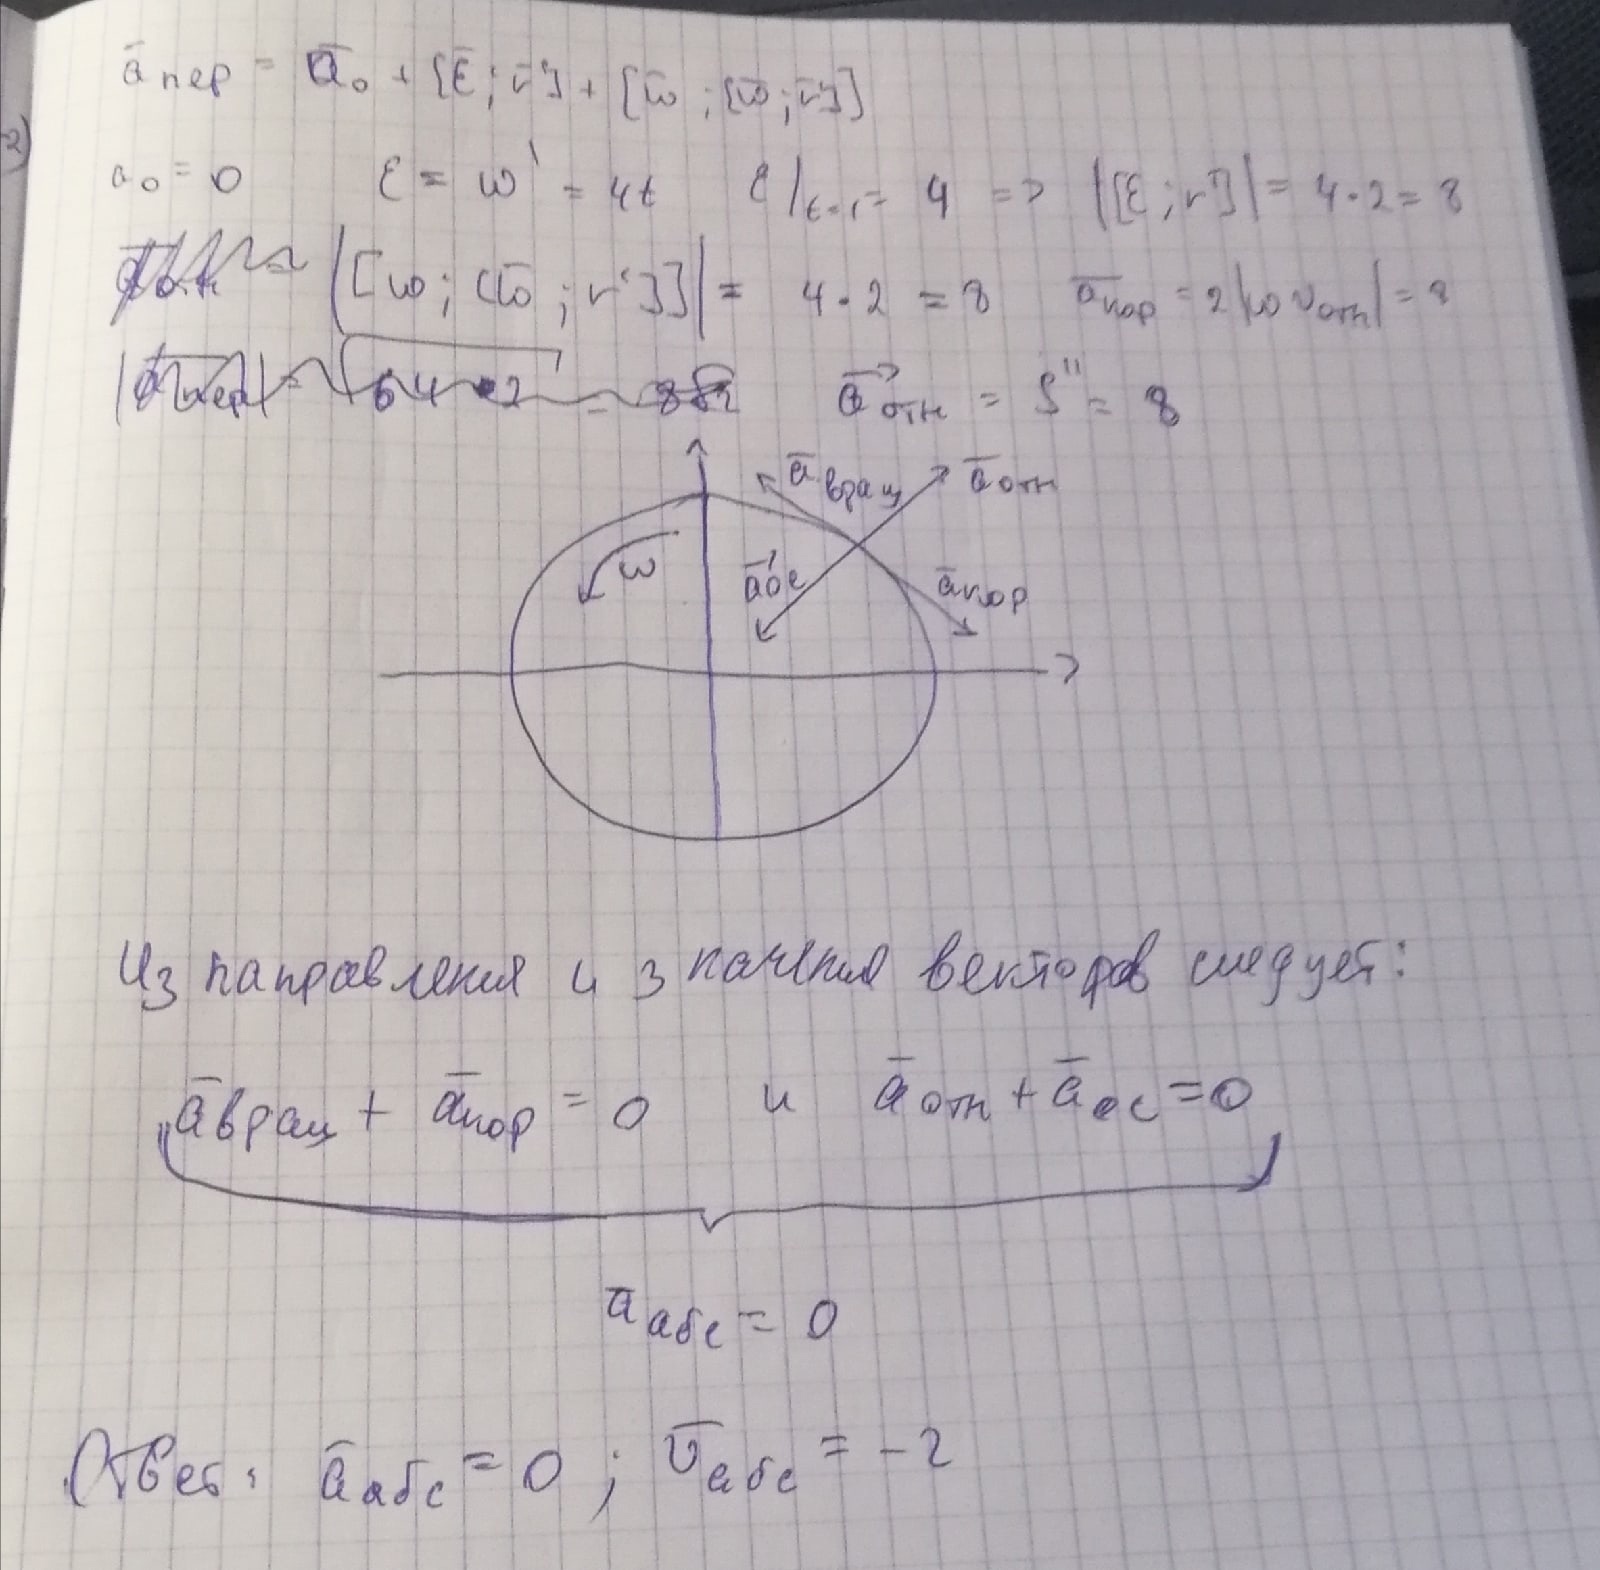 2)
ā пер = ā₀ + [ε̄; r̄'] + [ω̄; [ω̄; r̄']]
a₀ = 0 ε = ω' = 4t ε|t=1 = 4 => |[ε; r']| = 4·2 = 8
|[ω; [ω̄; r']]| = 4·2 = 8 ā кор = 2|ω v отн| = 8
|ā пер| = √64·2 = 8√2 a⃗ отн = S'' = 8
ā вращ ā отн
ω ā ос ā кор
Из направления и значения векторов следует:
ā вращ + ā кор = 0 и ā отн + ā ос = 0
ā абс = 0
Ответ: ā абс = 0; v̄ абс = -2